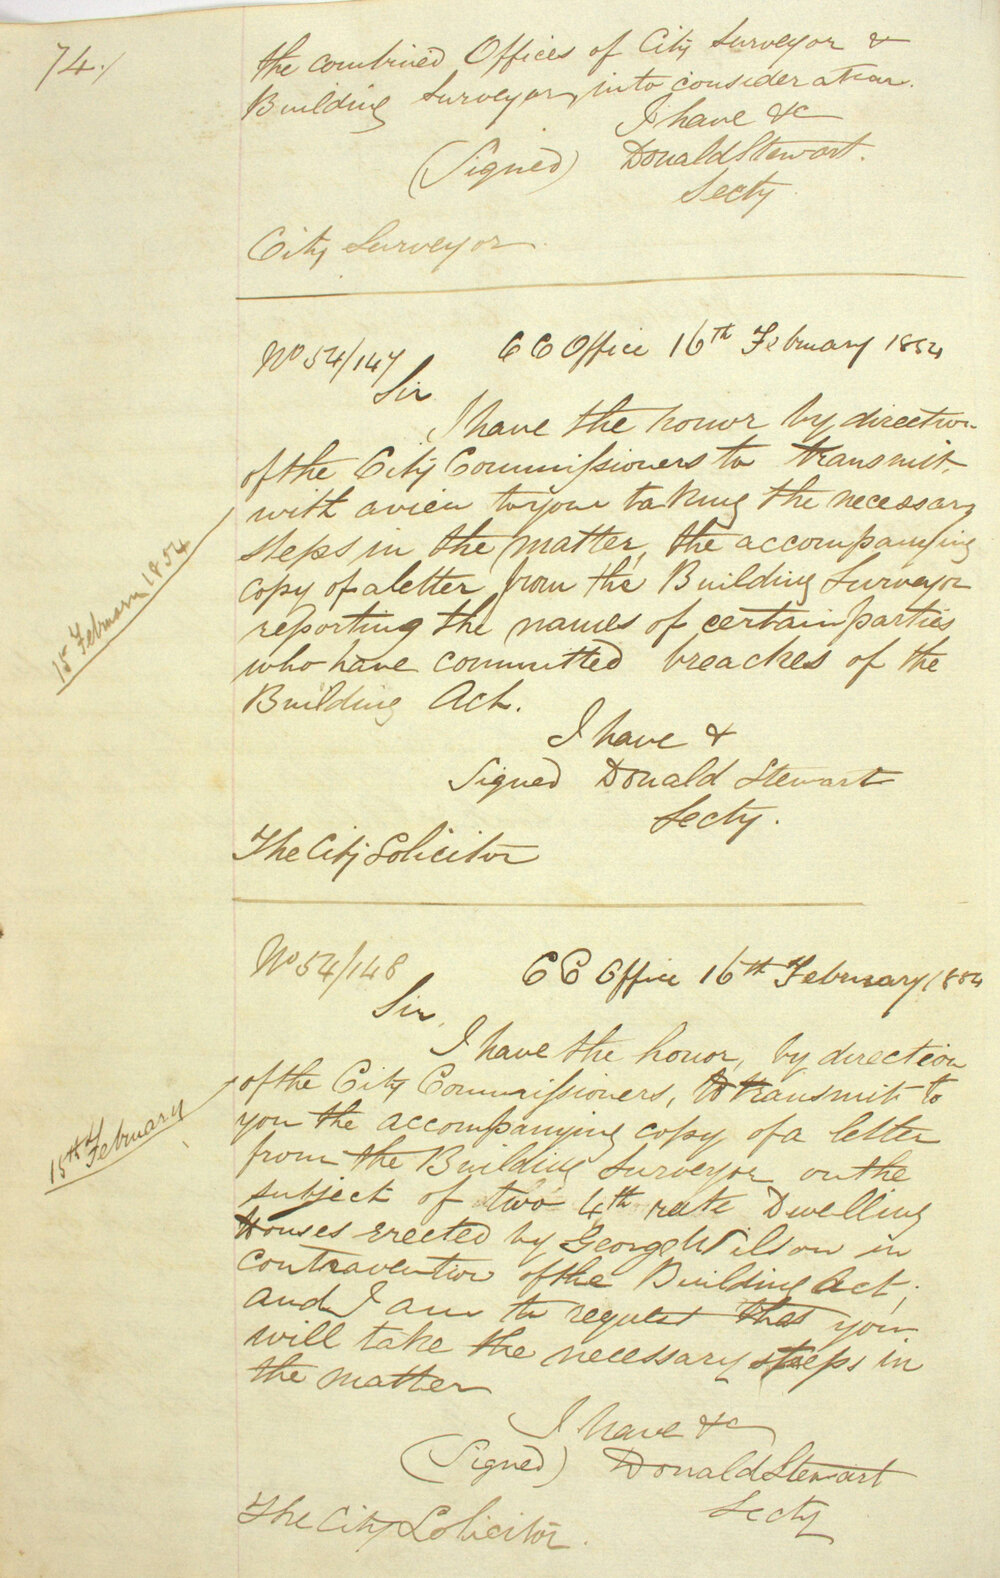 74./
the combined Offices of City Surveyor &
Building Surveyor, into consideration.
I have &c
(Signed) Donald Stewart.
Secty
City Surveyor
No 54/147 CC Office 16th February 1854
Sir
I have the honor by direction
of the City Commissioners to transmit
with a view to your taking the necessary
steps in the matter, the accompanying
copy of a letter from the Building Surveyor
reporting the names of certain parties
who have committed breaches of the
Building Act.
15 February 1854
I have &
Signed Donald Stewart
Secty.
The City Solicitor
No 54/148 CC Office 16th February 1854
Sir,
I have the honor, by direction
of the City Commissioners, to transmit to
you the accompanying copy of a letter
from the Building Surveyor on the
subject of two 4th rate Dwelling
Houses erected by George Wilson in
contravention of the Building Act,
and I am to request that you
will take the necessary steps in
the matter
15th February
I have &c
(Signed) Donald Stewart
Secty
The City Solicitor.